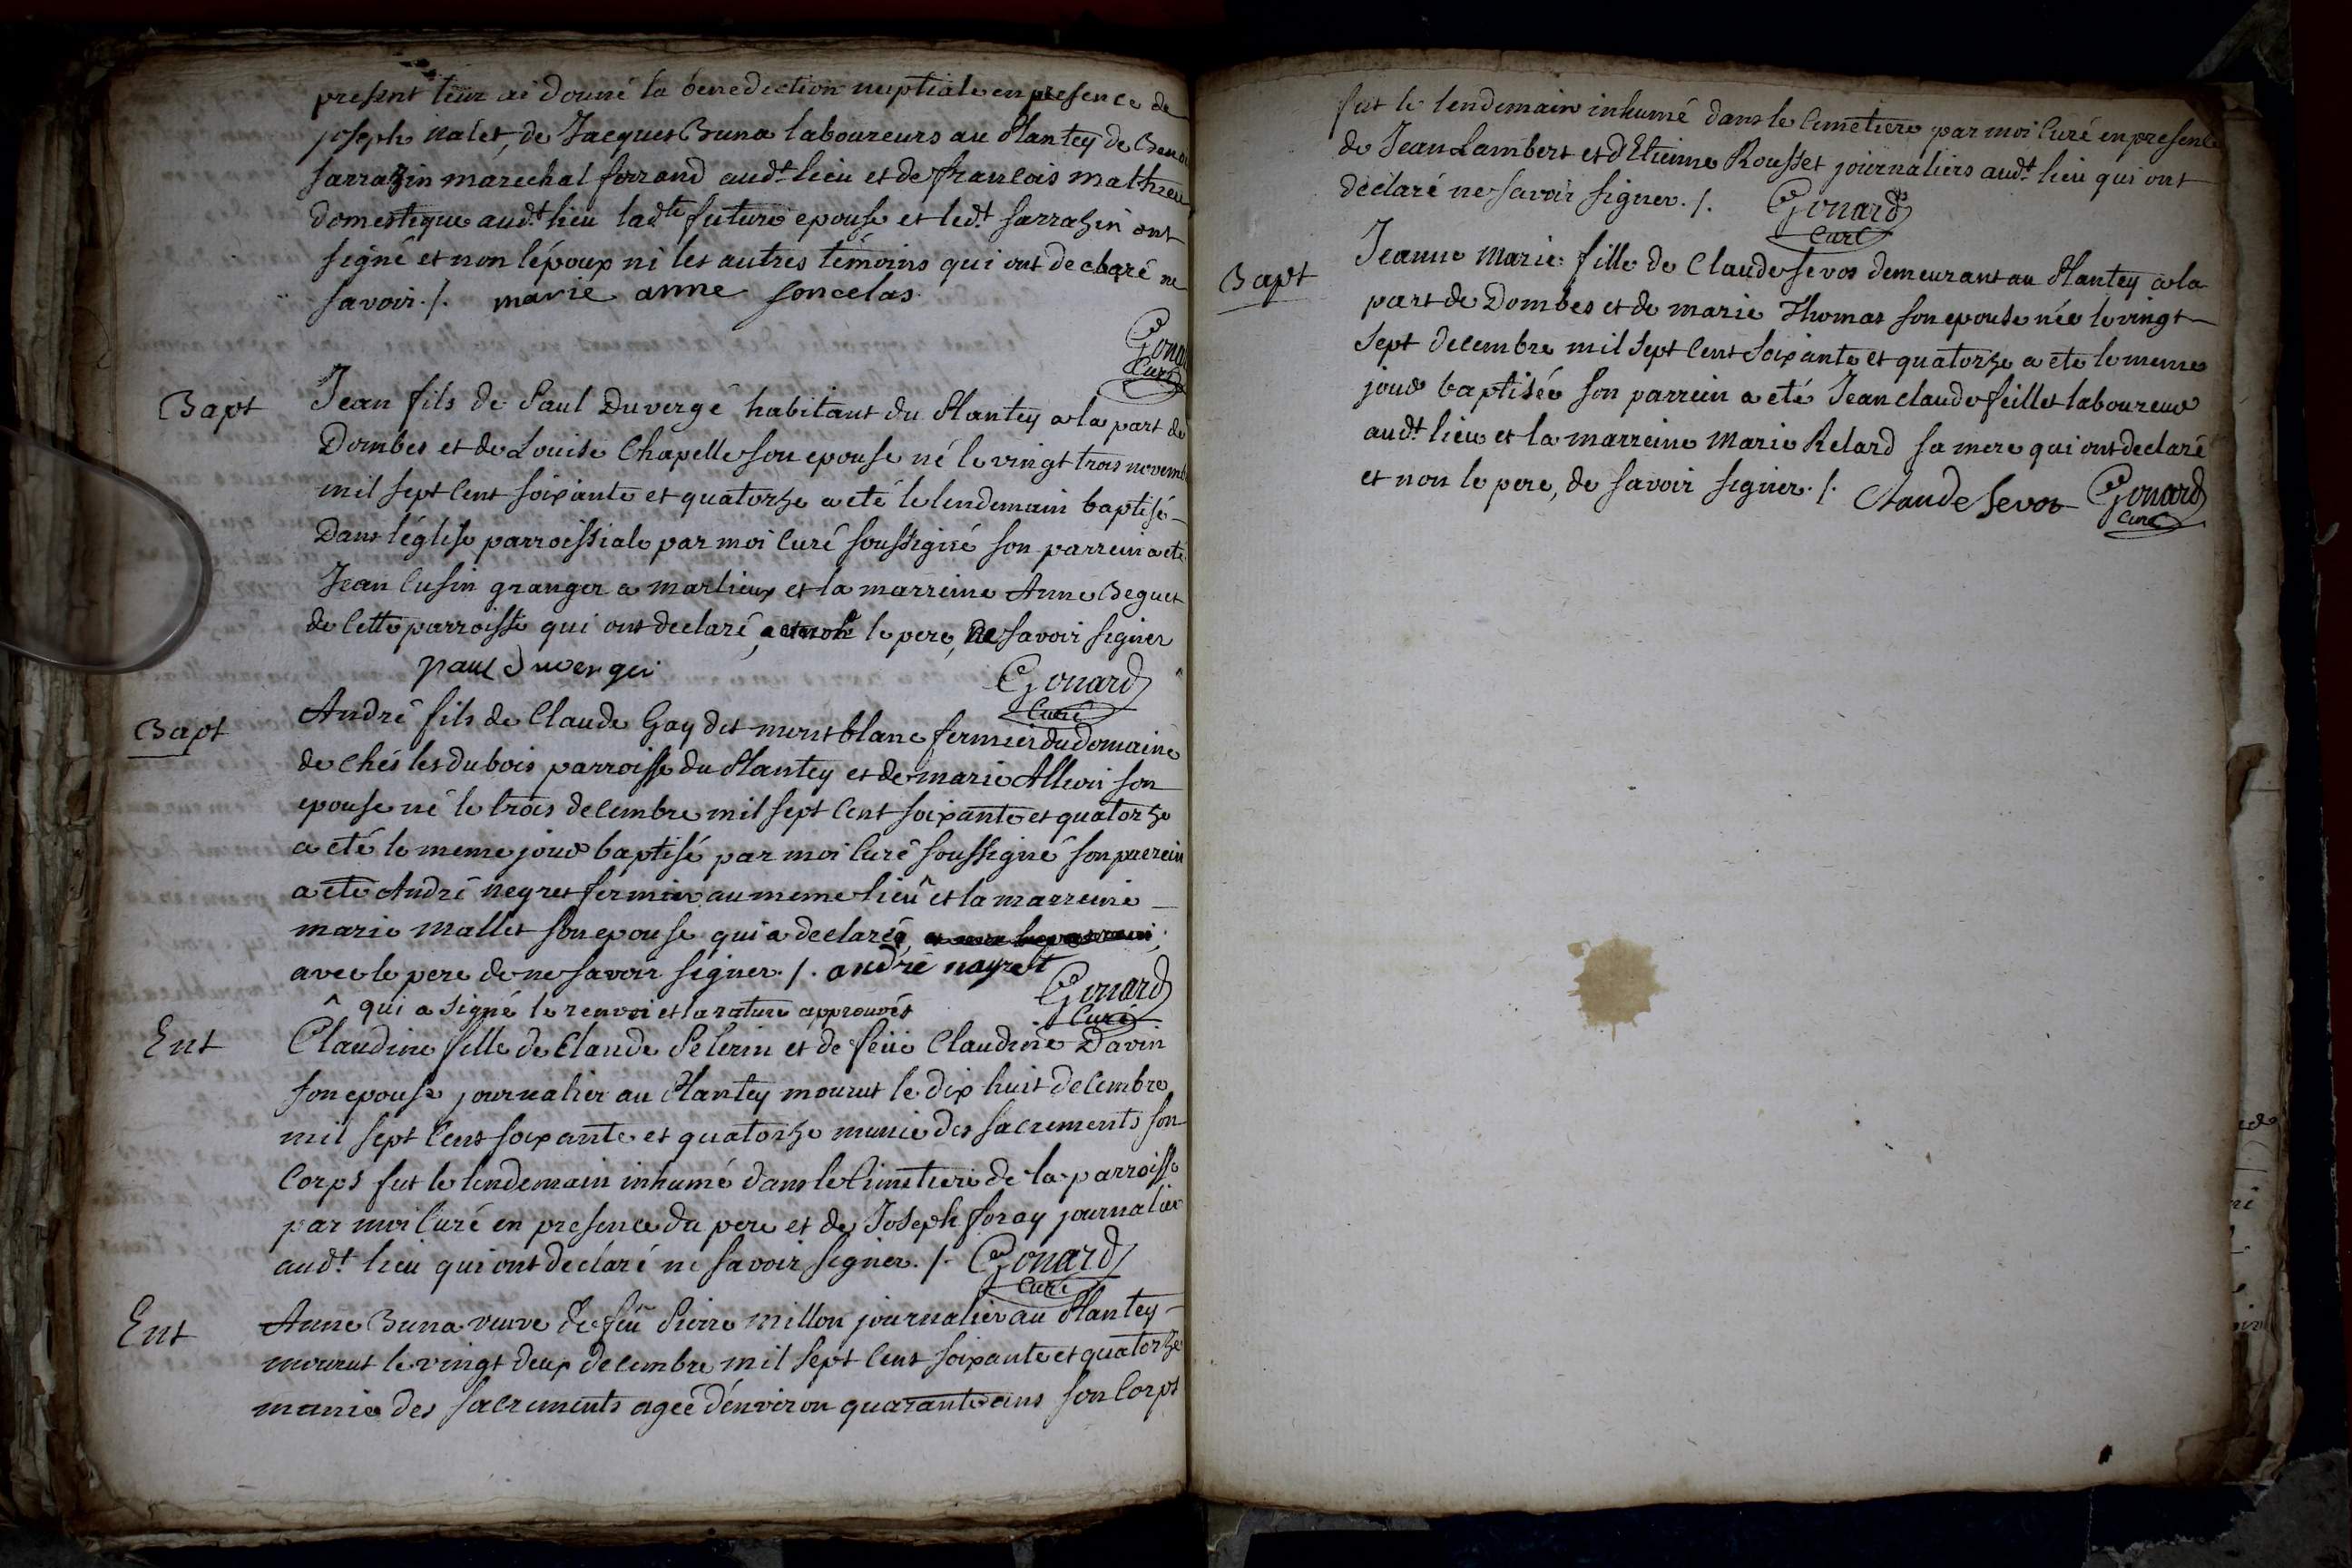 present leur ai donné la benediction nuptiale en presence de
joseph nalet, de Jacques Buna laboureurs au Plantey de Beno
sarrazin marechal ferrand aud.t lieu et de françois mathieu
domestique aud.t lieu lad.te future epouse et led.t sarrazin ont
signé et non l'époux ni les autres témoins qui ont declaré ne
savoir ./. marie anne soncelas
Gona
Curé
Bapt
Jean fils de Paul Duvergé habitant du Plantey a la part de
Dombes et de Louise Chapelle son epouse né le vingt trois novemb
mil sept cent soixante et quatorze a eté le lendemain baptisé
Dans l'église parroissiale par moi Curé soussigné son parrein a eté
Jean Cusin granger a marlieux et la marreine Anne Beguet
de Cette parroisse qui ont declaré, le pere, ne savoir signer
paul Duvergei
Gonard
Curé
Bapt
André fils de Claude Gay dit mont blanc fermier du domaine
de chés les dubois parroisse du Plantey et de marie Alleoin son
epouse né le trois decembre mil sept cent soixante et quatorze
a eté le meme jour baptisé par moi Curé soussigné son parrein
a eté André negret fermier au meme lieu ^ et la marreine
marie mallet son epouse qui a declaré,
avec le pere de ne savoir signer ./. andré nayret
^ qui a signé le renvoi et la rature approuvés
Gonard
Curé
Ent
Claudine fille de Claude Pelerin et de feüe Claudine Davin
son epouse journalier au Plantey mourut le dix huit decembre
mil sept cent soixante et quatorze munie des sacrements son
Corps fut le lendemain inhumé dans le Cimetiere de la parroisse
par moi Curé en presence du pere et de Joseph foray journalier
aud.t lieu qui ont déclaré ne savoir signer ./. Gonard
Curé
Ent
Anne Buna veuve de feu Pierre millon journalier au Plantey
mourut le vingt deux decembre mil sept cent soixante et quatorze
munie des sacrements agée d'environ quarante ans son Corps
fut le lendemain inhumé dans le Cimetiere par moi Curé en presence
de Jean Lambert et d'Etienne Rousset journaliers aud.t lieu qui ont
declaré ne savoir signer ./. Gonard
Curé
Bapt
Jeanne Marie fille de Claude sevos demeurant au Plantey a la
part de Dombes et de marie Thomas son epouse née le vingt
sept decembre mil sept cent soixante et quatorze a eté le meme
jour baptisée son parrein a eté Jean claude feillet laboureur
aud.t lieu et la marreine Marie Relard sa mere qui ont declaré
et non le pere, de savoir signer ./. Claude Sevos Gonard
Curé